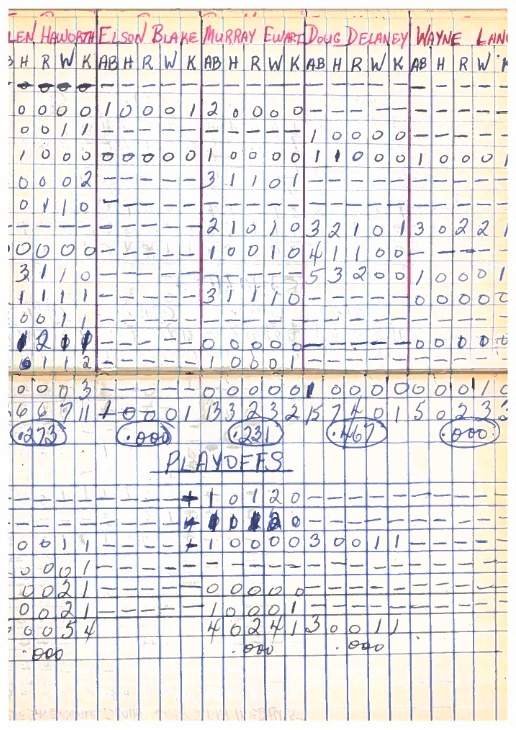 LEN HAWORTH ELSON BLAKE MURRAY EWART DOUG DELANEY WAYNE LANG
H R W K AB H R W K AB H R W K AB H R W K AB H R W
0 0 0 0 1 0 0 0 1 2 0 0 0 0 - - - - - - - - -
0 0 1 1 - - - - - - - - - - 1 0 0 0 0
1 0 0 0 0 0 0 0 0 1 0 0 0 0 1 1 0 0 0 1 0 0 0 1
0 0 0 2 - - - - - 3 1 1 0 1 - - - - - - - - -
0 1 1 0 - - - - - - - - - - - - - - - - - - -
- - - - - - - - - 2 1 0 1 0 3 2 1 0 1 3 0 2 2 1
0 0 0 0 - - - - - 1 0 0 1 0 4 1 1 0 0 - - - -
3 1 1 0 - - - - - - - - - - 5 3 2 0 0 1 0 0 0 1
1 1 1 1 - - - - - 3 1 1 1 0 - - - - - 0 0 0 0 0
0 0 1 1 - - - - - - - - - - - - - - - - - - -
1 2 0 1 - - - - - 0 0 0 0 0 - - - - - 0 0 0 0 0
0 1 1 2 - - - - - 1 0 0 0 1 - - - - - - - - -
0 0 0 3 - - - - - 0 0 0 0 0 1 0 0 0 0 0 0 0 1 0
6 6 7 11 1 0 0 0 1 13 3 2 3 2 15 7 4 0 1 5 0 2 3 3
.273 .000 .231 .467 .000
PLAYOFFS
- - - - - - - - + 1 0 1 2 0 - - - - - - - - -
- - - - - - - - + 1 0 1 2 0 - - - - - - - - -
0 0 1 1 - - - - + 1 0 0 0 0 3 0 0 1 1 - - - -
0 0 0 1 - - - - - - - - - - - - - - - - - - -
0 0 2 1 - - - - - 0 0 0 0 0 - - - - - - - - -
0 0 2 1 - - - - - 1 0 0 0 1 - - - - - - - - -
0 0 5 4 4 0 2 4 1 3 0 0 1 1
.000 .000 .000